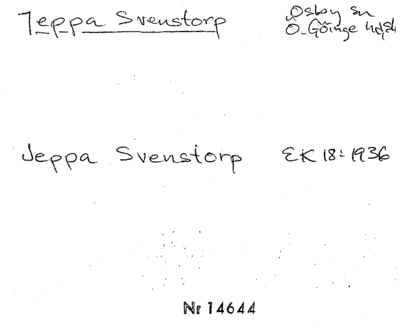 Jeppa Svenstorp
Osby sn
Ö. Göinge hd, Sk
Jeppa Svenstorp EK 18: 1936
Nr 14644